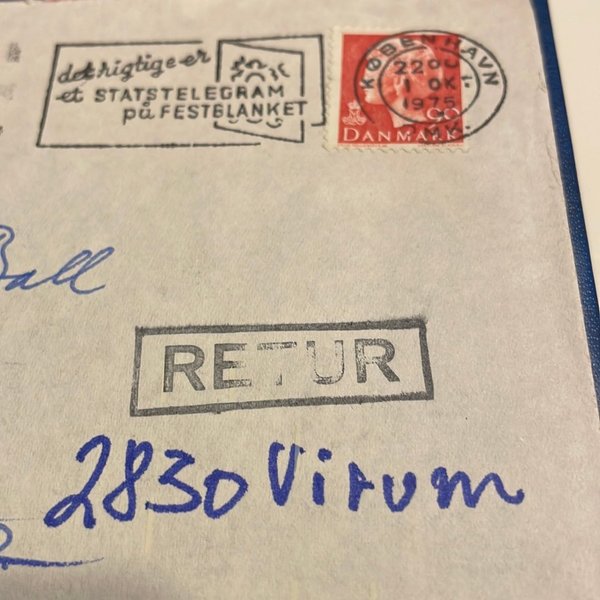 det rigtige er
et STATSTELEGRAM
på FESTBLANKET
KØBENHAVN
22 00
1 OK
1975
90
DANMARK
Ball
RETUR
2830 Virum